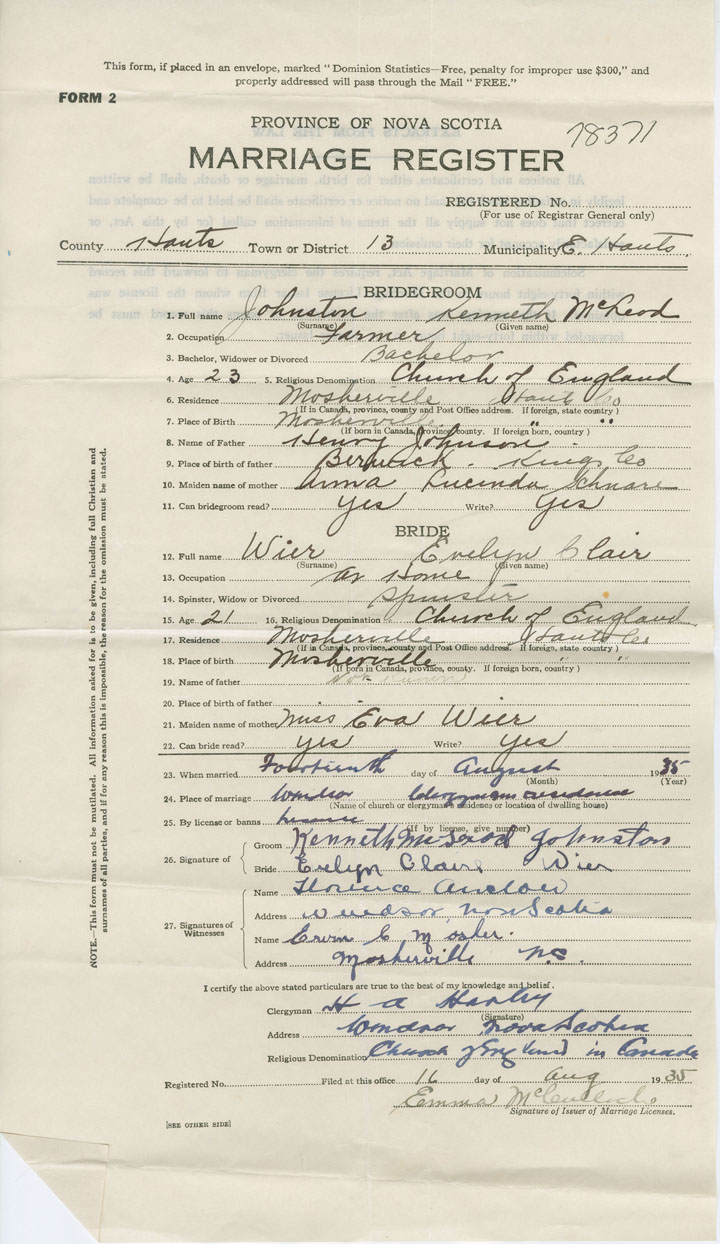 This form, if placed in an envelope, marked "Dominion Statistics—Free, penalty for improper use $300," and
properly addressed will pass through the Mail "FREE."
FORM 2
PROVINCE OF NOVA SCOTIA
78371
MARRIAGE REGISTER
REGISTERED No.
(For use of Registrar General only)
County Hants Town or District 13 Municipality E. Hants
BRIDEGROOM
1. Full name Johnston Kenneth McLeod
(Surname) (Given name)
2. Occupation Farmer
3. Bachelor, Widower or Divorced Bachelor
4. Age 23 5. Religious Denomination Church of England
6. Residence Mosherville Hants Co
(If in Canada, province, county and Post Office address. If foreign, state country)
7. Place of Birth Mosherville " "
(If born in Canada, province, county. If foreign born, country)
8. Name of Father Henry Johnson
9. Place of birth of father Berwick. Kings Co
10. Maiden name of mother Anna Lucinda Schnare
11. Can bridegroom read? yes Write? yes
BRIDE
12. Full name Wier Evelyn Clair
(Surname) (Given name)
13. Occupation at Home
14. Spinster, Widow or Divorced Spinster
15. Age 21 16. Religious Denomination Church of England
17. Residence Mosherville Hants Co
(If in Canada, province, county and Post Office address. If foreign, state country)
18. Place of birth Mosherville " "
(If born in Canada, province, county. If foreign born, country)
19. Name of father Not Known
20. Place of birth of father
21. Maiden name of mother Miss Eva Wier
22. Can bride read? yes Write? yes
23. When married Fourteenth day of August 1935
(Month) (Year)
24. Place of marriage Windsor Clergyman residence
(Name of church or clergyman's residence or location of dwelling house)
25. By license or banns license
(If by license, give number)
26. Signature of
Groom Kenneth McLeod Johnston
Bride Evelyn Claire Wier
27. Signatures of Witnesses
Name Florence Anslow
Address Windsor, Nova Scotia
Name Ervin C Mosher.
Address Mosherville N.S.
I certify the above stated particulars are true to the best of my knowledge and belief.
Clergyman H A Hanley
(Signature)
Address Windsor Nova Scotia
Religious Denomination Church of England in Canada
Registered No. Filed at this office 16 day of Aug 1935
Emma
Signature of Issuer of Marriage Licenses.
[SEE OTHER SIDE]
NOTE.—This form must not be mutilated. All information asked for is to be given, including full Christian and
surnames of all parties, and if for any reason this is impossible, the reason for the omission must be stated.